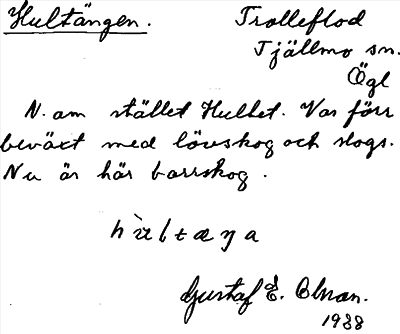 Hultängen. Trolleflod
Tjällmo sn.
Ögl
N. om stället Hulhet. Var förr
beväxt med lövskog och slogs.
Nu är här barrskog.
Gustaf E.
1938